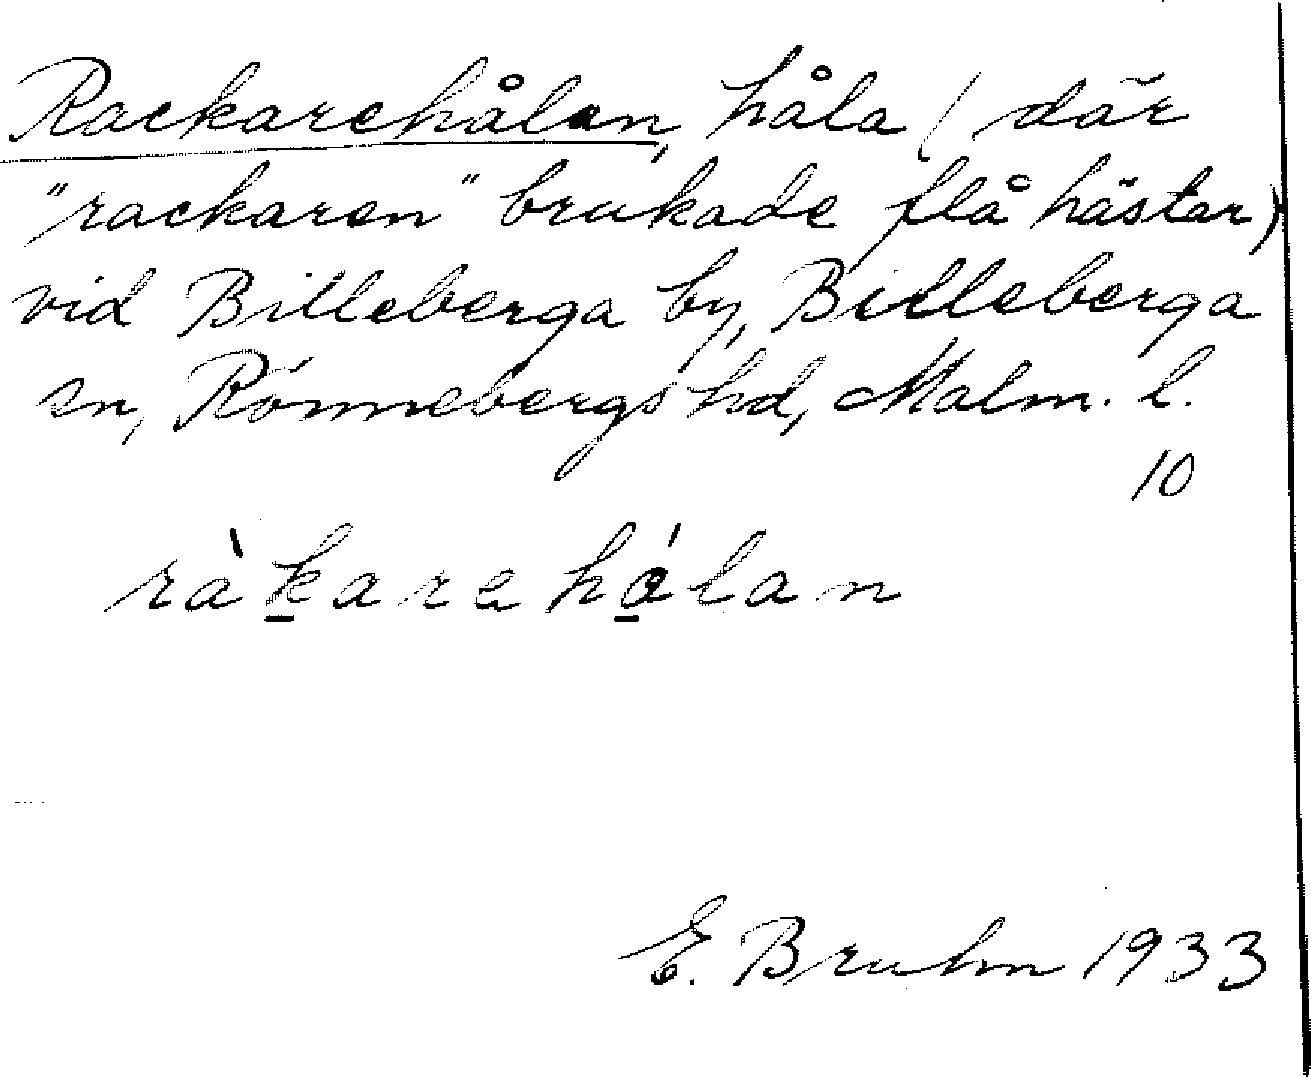 Rackarehålan, håla (där
"rackaren" brukade flå hästar)
vid Billeberga by, Billeberga
sn, Rönnebergs hd, Malm. l.
10
ràkarehólan
E. Bruhn 1933